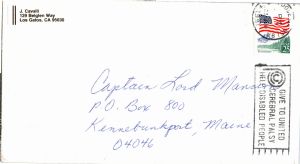 J. Cavalli
139 Belglen Way
Los Gatos, CA 95030
25
Captain Lord Mansion
P.O. Box 800
Kennebunkport, Maine
04046
GIVE TO UNITED
CEREBRAL PALSY
HELP DISABLED PEOPLE